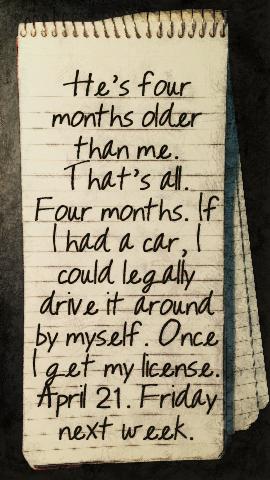 He's four
months older
than me.
That's all.
Four months. If
I had a car, I
could legally
drive it around
by myself. Once
I get my license.
April 21. Friday
next week.